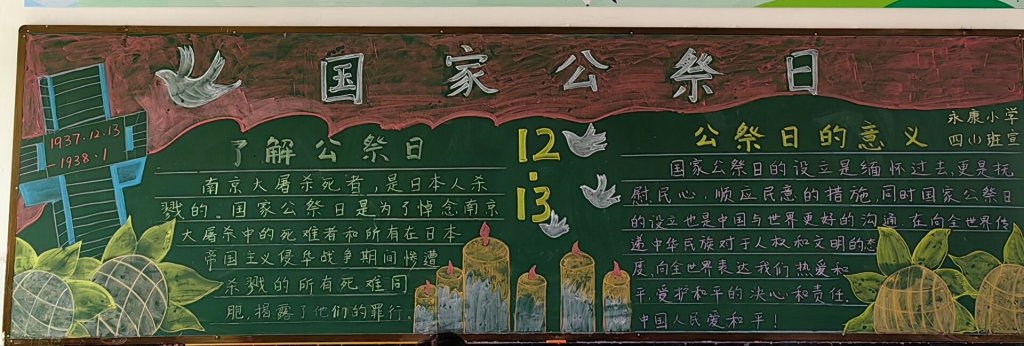 国家公祭日
1937.12.13
-1938.1
了解公祭日
南京大屠杀死者,是日本人杀
戮的。国家公祭日是为了悼念南京
大屠杀中的死难者和所有在日本
帝国主义侵华战争期间惨遭
杀戮的所有死难同
胞,揭露了他们的罪行。
12
.
13
公祭日的意义
永康小学
四(1)班宣
国家公祭日的设立是缅怀过去,更是抚
慰民心,顺应民意的措施,同时国家公祭日
的设立也是中国与世界更好的沟通.在向全世界传
递中华民族对于人权和文明的态
度,向全世界表达我们热爱和
平,爱护和平的决心和责任.
中国人民爱和平!